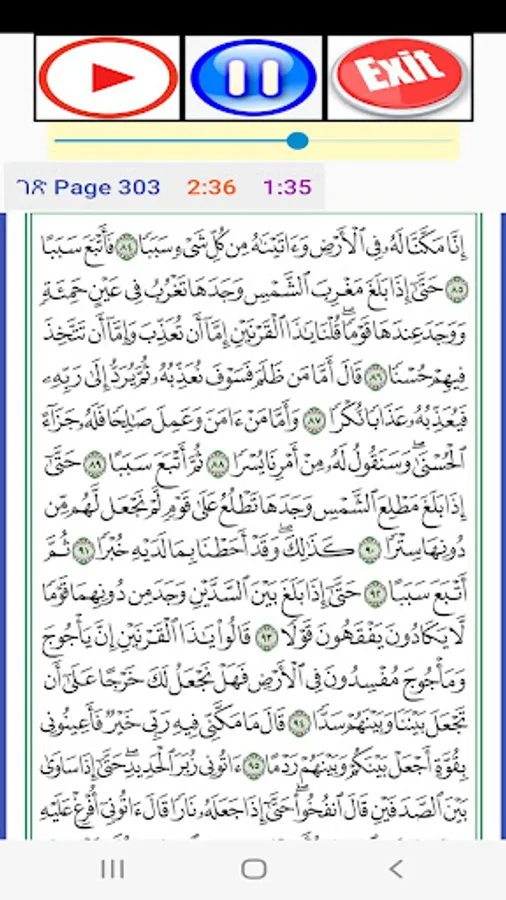 Exit
ገጽ Page 303 2:36 1:35
إِنَّا مَكَّنَّا لَهُۥ فِي ٱلْأَرْضِ وَءَاتَيْنَٰهُ مِن كُلِّ شَىْءٍ سَبَبًا ٨٤ فَأَتْبَعَ سَبَبًا
٨٥ حَتَّىٰٓ إِذَا بَلَغَ مَغْرِبَ ٱلشَّمْسِ وَجَدَهَا تَغْرُبُ فِي عَيْنٍ حَمِئَةٍ
وَوَجَدَ عِندَهَا قَوْمًا ۗ قُلْنَا يَٰذَا ٱلْقَرْنَيْنِ إِمَّآ أَن تُعَذِّبَ وَإِمَّآ أَن تَتَّخِذَ
فِيهِمْ حُسْنًا ٨٦ قَالَ أَمَّا مَن ظَلَمَ فَسَوْفَ نُعَذِّبُهُۥ ثُمَّ يُرَدُّ إِلَىٰ رَبِّهِۦ
فَيُعَذِّبُهُۥ عَذَابًا نُّكْرًا ٨٧ وَأَمَّا مَنْ ءَامَنَ وَعَمِلَ صَٰلِحًا فَلَهُۥ جَزَآءً
ٱلْحُسْنَىٰ ۖ وَسَنَقُولُ لَهُۥ مِنْ أَمْرِنَا يُسْرًا ٨٨ ثُمَّ أَتْبَعَ سَبَبًا ٨٩ حَتَّىٰٓ
إِذَا بَلَغَ مَطْلِعَ ٱلشَّمْسِ وَجَدَهَا تَطْلُعُ عَلَىٰ قَوْمٍ لَّمْ نَجْعَل لَّهُم مِّن
دُونِهَا سِتْرًا ٩٠ كَذَٰلِكَ ۖ وَقَدْ أَحَطْنَا بِمَا لَدَيْهِ خُبْرًا ٩١ ثُمَّ
أَتْبَعَ سَبَبًا ٩٢ حَتَّىٰٓ إِذَا بَلَغَ بَيْنَ ٱلسَّدَّيْنِ وَجَدَ مِن دُونِهِمَا قَوْمًا
لَّا يَكَادُونَ يَفْقَهُونَ قَوْلًا ٩٣ قَالُوا۟ يَٰذَا ٱلْقَرْنَيْنِ إِنَّ يَأْجُوجَ
وَمَأْجُوجَ مُفْسِدُونَ فِي ٱلْأَرْضِ فَهَلْ نَجْعَلُ لَكَ خَرْجًا عَلَىٰٓ أَن
تَجْعَلَ بَيْنَنَا وَبَيْنَهُمْ سَدًّا ٩٤ قَالَ مَا مَكَّنِّي فِيهِ رَبِّي خَيْرٌ فَأَعِينُونِي
بِقُوَّةٍ أَجْعَلْ بَيْنَكُمْ وَبَيْنَهُمْ رَدْمًا ٩٥ ءَاتُونِي زُبَرَ ٱلْحَدِيدِ ۖ حَتَّىٰٓ إِذَا سَاوَىٰ
بَيْنَ ٱلصَّدَفَيْنِ قَالَ ٱنفُخُوا۟ ۖ حَتَّىٰٓ إِذَا جَعَلَهُۥ نَارًا قَالَ ءَاتُونِيٓ أُفْرِغْ عَلَيْهِ